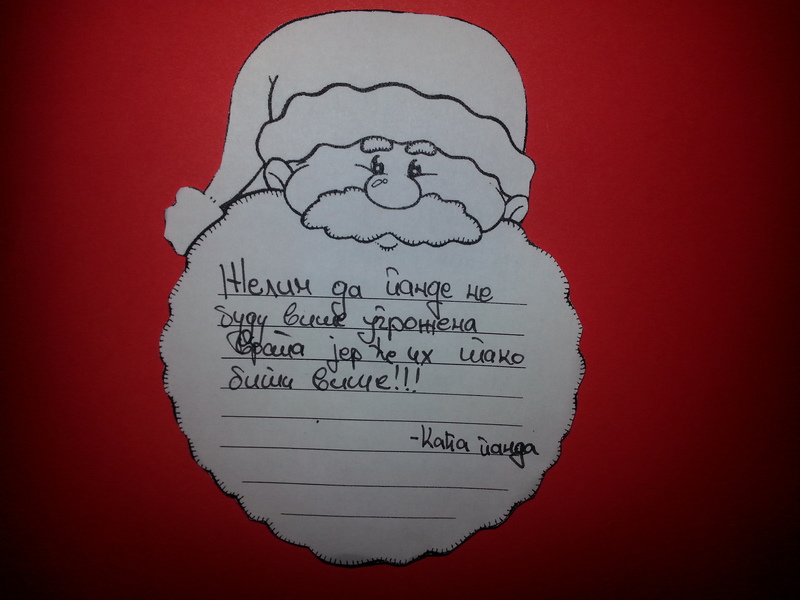 Желим да панде не
буду више угрожена
врста јер ће их тако
бити више!!!
-Ката панда